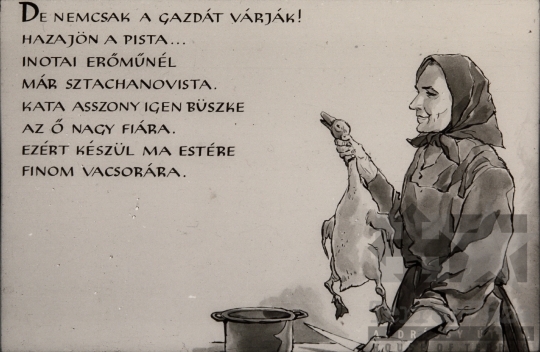 DE NEMCSAK A GAZDÁT VÁRJÁK!
HAZAJÖN A PISTA...
INOTAI ERŐMŰNÉL
MÁR SZTACHANOVISTA.
KATA ASSZONY IGEN BÜSZKE
AZ Ő NAGY FIÁRA.
EZÉRT KÉSZÜL MA ESTÉRE
FINOM VACSORÁRA.